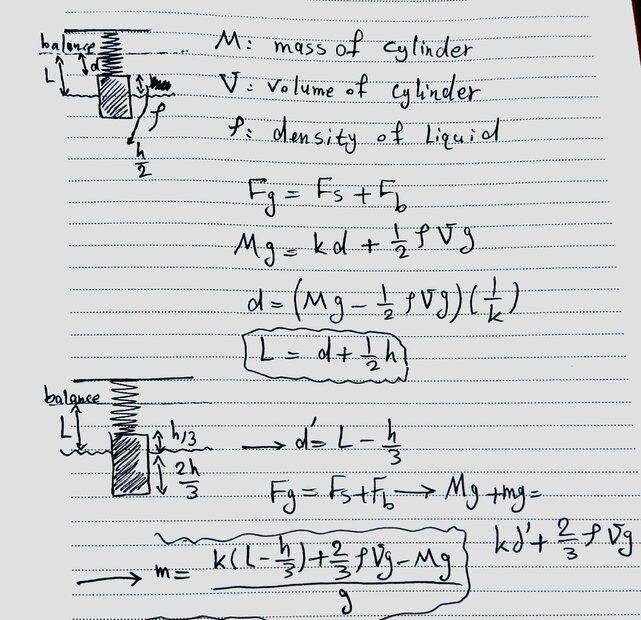 balance
d
L
ρ
h/2
M: mass of cylinder
V: volume of cylinder
ρ: density of Liquid
Fg = Fs + Fb
Mg = kd + 1/2 ρVg
d = (Mg - 1/2 ρVg)(1/k)
L = d + 1/2 h
balance
L
h/3
2h/3
→ d' = L - h/3
Fg = Fs + Fb → Mg + mg =
kd' + 2/3 ρVg
→ m = (k(L - h/3) + 2/3 ρVg - Mg)/g